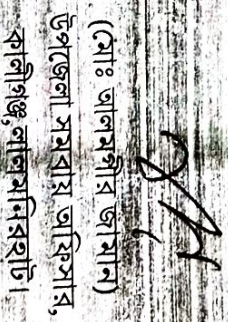 (মোঃ আলমগীর জামান)
উপজেলা সমবায় অফিসার,
কালীগঞ্জ, লালমনিরহাট।